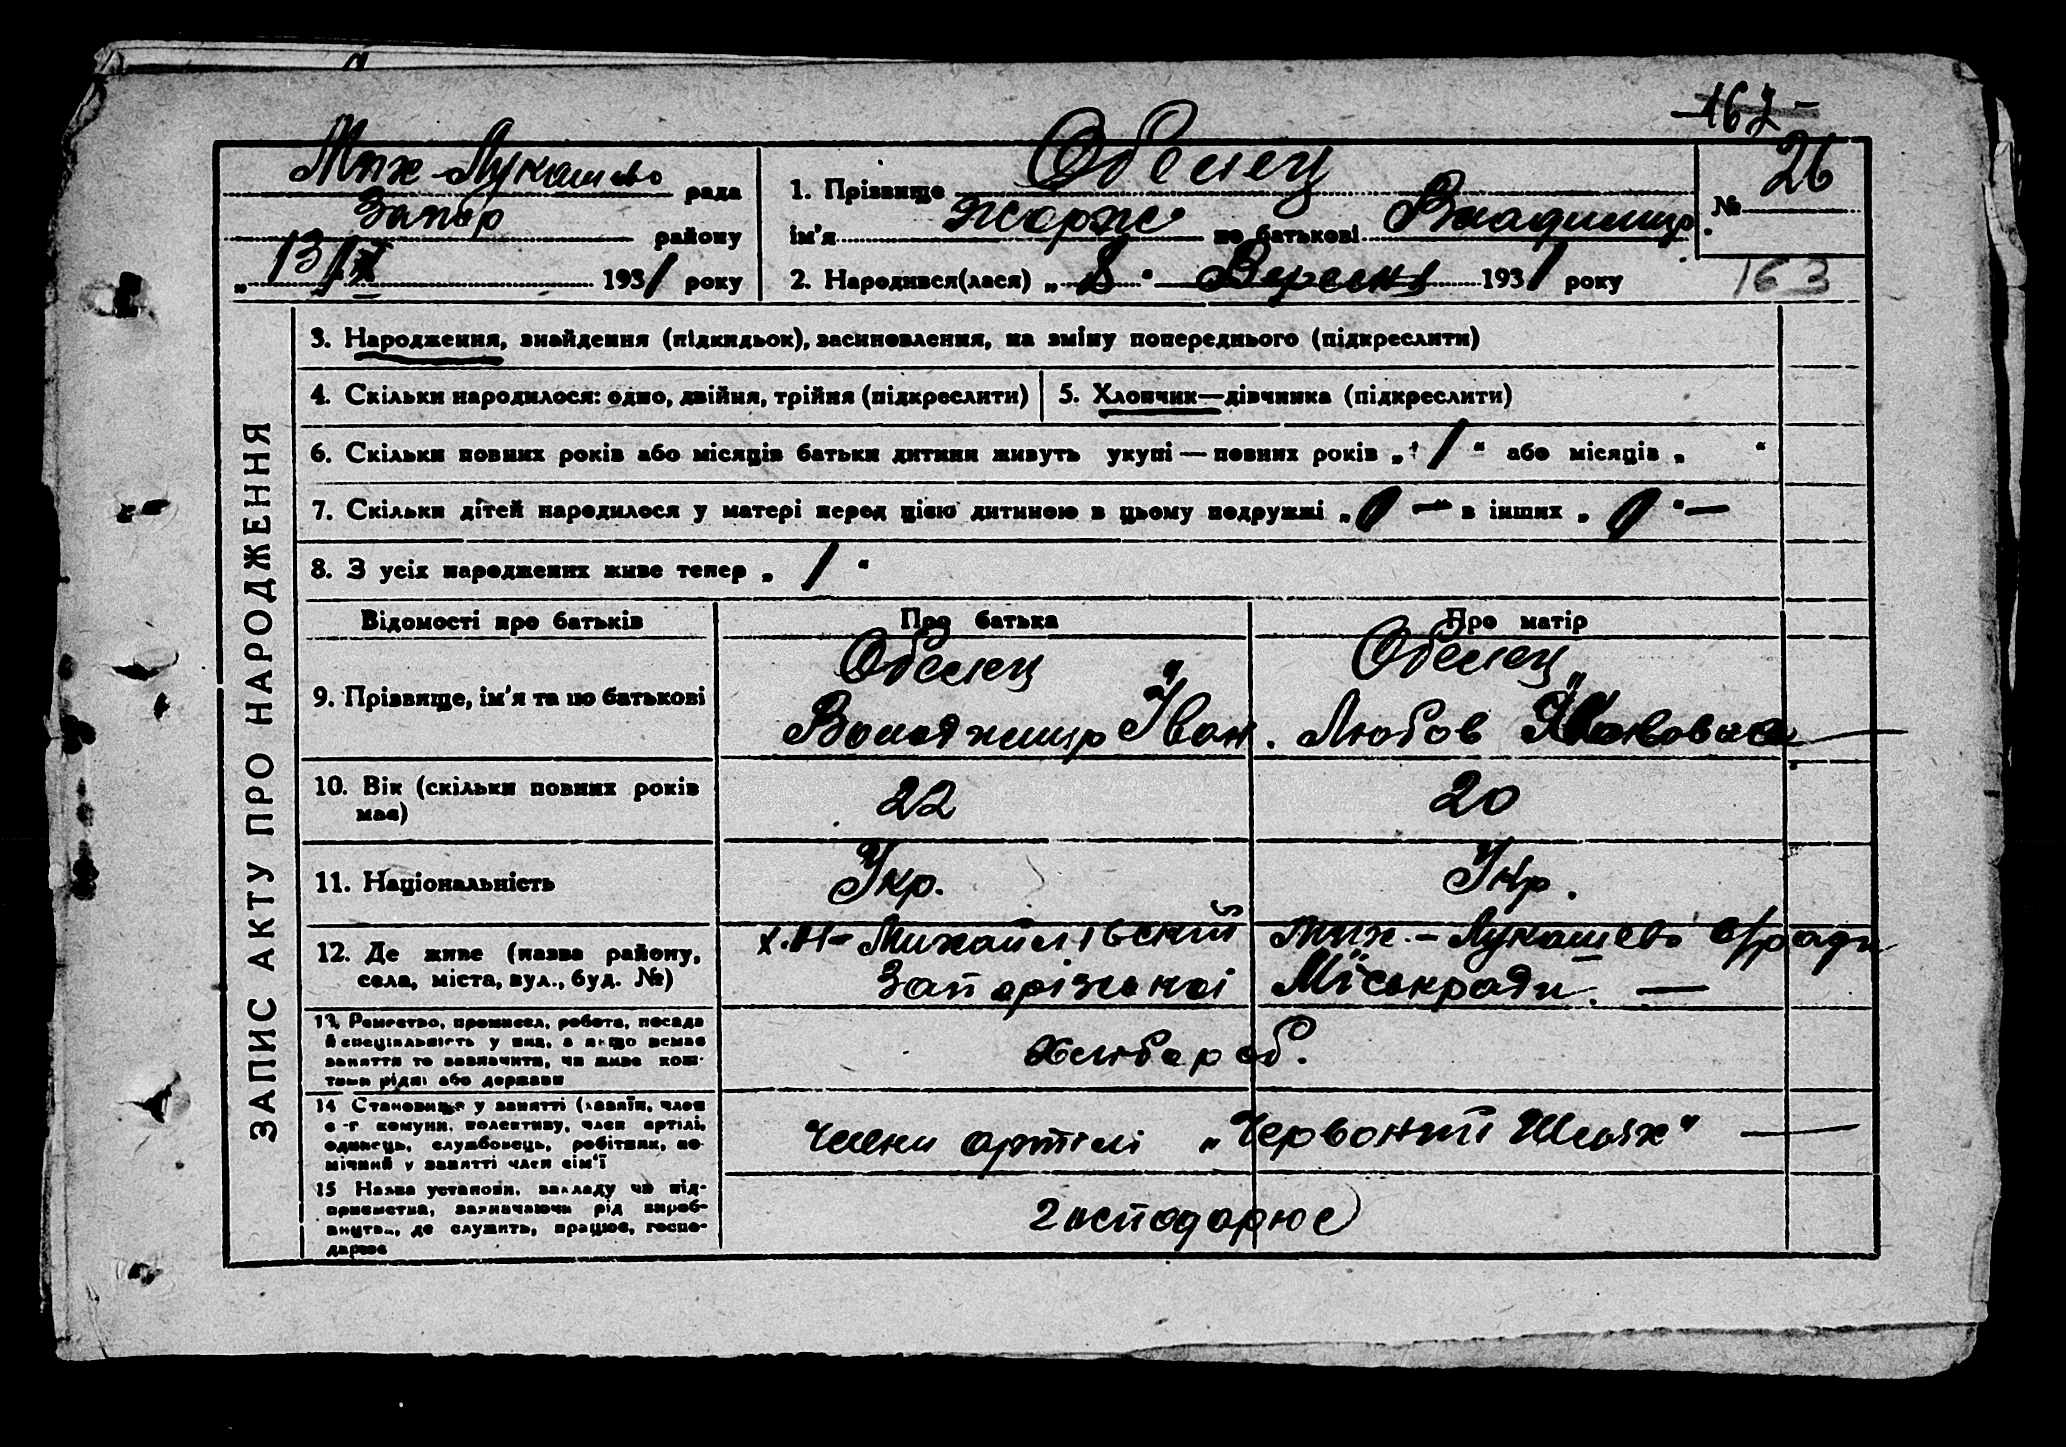 -162-
Мих-Лукашево рада
Запор району
"13/IX 1931 року
1. Прізвище Обелец
ім'я Жорж по батькові Владимир.
2. Народився(лася) „8" Вересня 1931 року
№ 26
163
ЗАПИС АКТУ ПРО НАРОДЖЕННЯ
3. Народження, знайдення (підкидьок), засиновлення, на зміну попереднього (підкреслити)
4. Скільки народилося: одно, двійня, трійня (підкреслити)
5. Хлопчик—дівчинка (підкреслити)
6. Скільки повних років або місяців батьки дитини живуть укупі — повних років „1" або місяців „ "
7. Скільки дітей народилося у матері перед цією дитиною в цьому подружжі „0 — в інших „0"—
8. З усіх народжених живе тепер „1"
Відомості про батьків Про батька Про матір
9. Прізвище, ім'я та по батькові
Обелец Обелец
Володимир Іван. Любов
10. Вік (скільки повних років має)
22 20
11. Національність
Укр. Укр.
12. Де живе (назва району, села, міста, вул., буд. №)
х. Н-Михайлівский Мих.-Лукашево с/ради
Запорізької Міськради. —
13. Ремество, промисел, робота, посада
й спеціяльність у ній, а якщо немає
заняття то зазначити, чи живе кош-
тами рідні або держави
хлібороб.
14 Становище у занятті (хазяїн, член
с-г комуни, колективу, член артілі,
одинець, службовець, робітник, по-
мічний у занятті член сім'ї
члени артілі „Червоний Шлях" —
15 Назва установи, закладу чи під-
приємства, зазначаючи рід вироб-
ництва, де служить, працює, госпо-
дарює
господарює